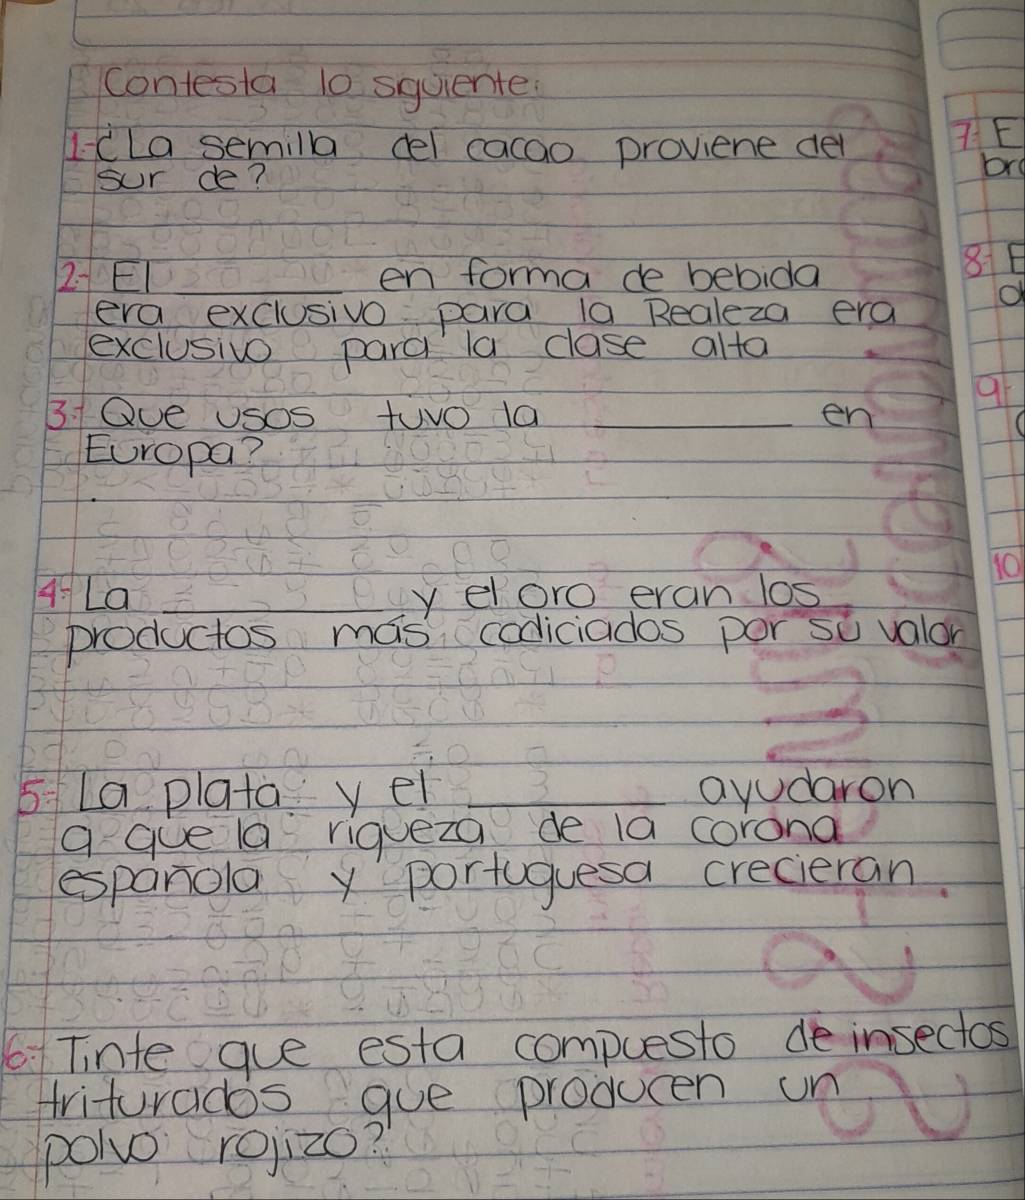 Contesta lo siguiente:
1-¿La semilla del cacao proviene del
sur de?
2-El ________ en forma de bebida
era exclusivo para la Realeza era
exclusivo para la clase alta
3- Que usos tuvo la ________ en
Europa?
4- La ________ y el oro eran los
productos más codiciados por su valor
5- La plata y el ________ ayudaron
a que la riqueza de la corona
española y portuguesa crecieran.
6- Tinte que esta compuesto de insectos
triturados que producen un
polvo rojizo?
7- E
bro
8- E
9-
10